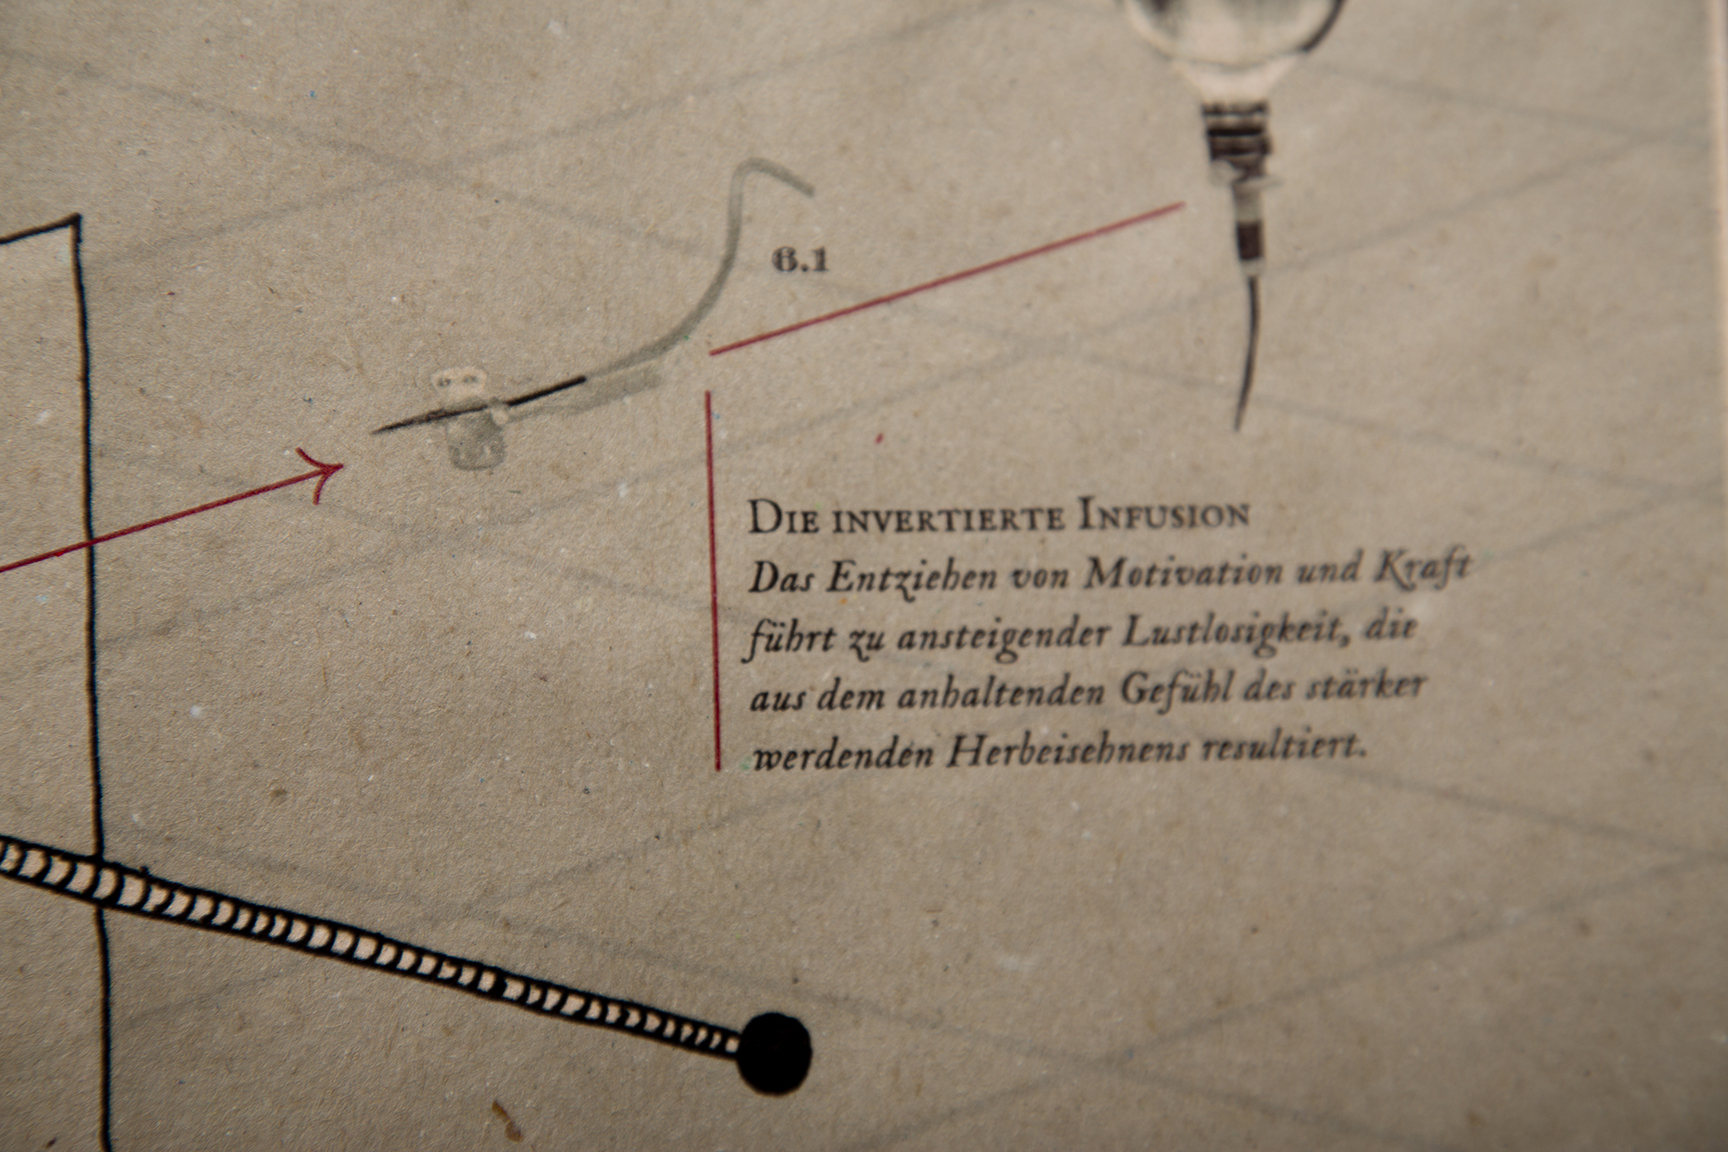 6.1
Die invertierte Infusion
Das Entziehen von Motivation und Kraft
führt zu ansteigender Lustlosigkeit, die
aus dem anhaltenden Gefühl des stärker
werdenden Herbeisehnens resultiert.